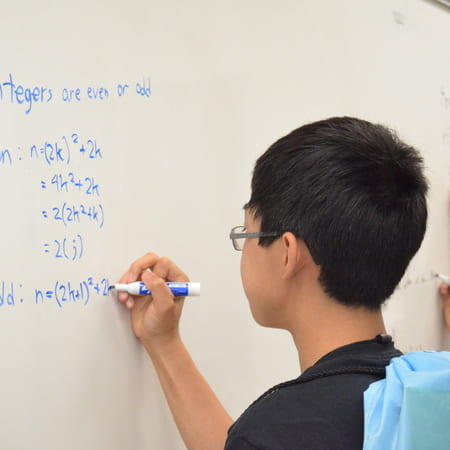 ntegers are even or odd
n: n=(2k)²+2k
=4k²+2k
=2(2k²+k)
=2(j)
dd: n=(2k+1)²+2k